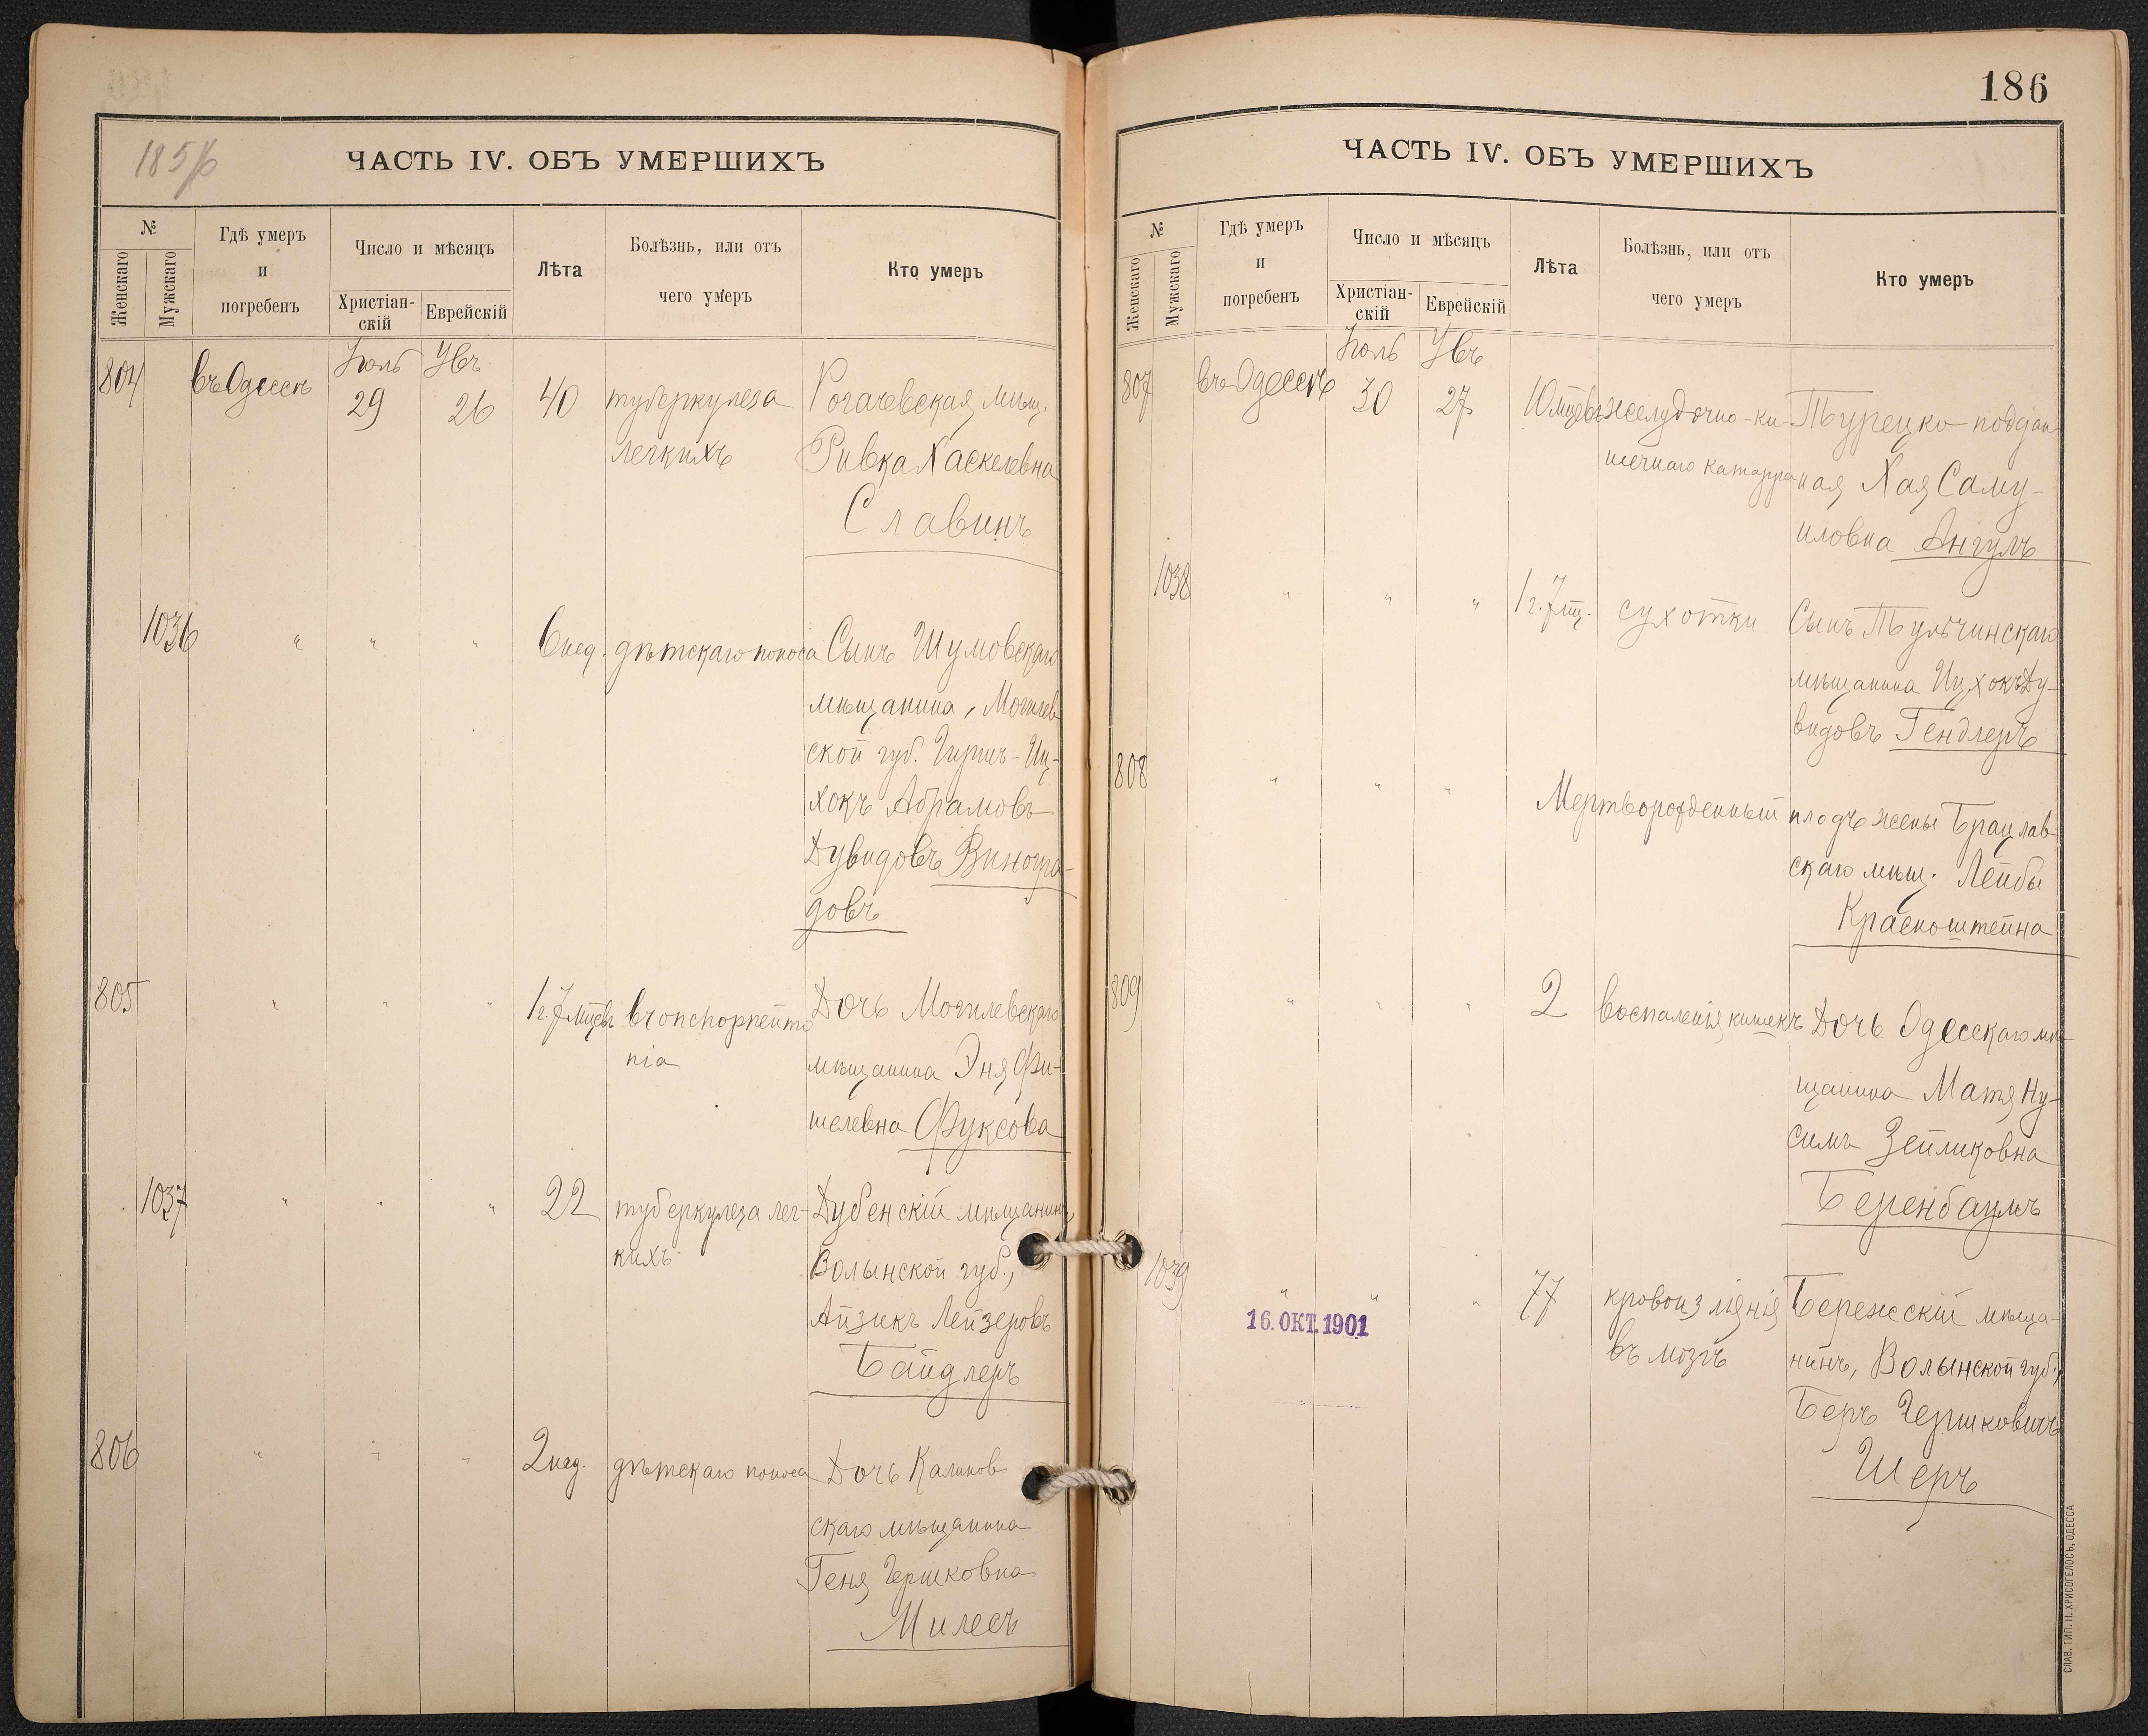 185/б
ЧАСТЬ IV. ОБЪ УМЕРШИХЪ
№
Женскаго
Мужскаго
Гдѣ умеръ
и
погребенъ
Число и мѣсяцъ
Христіан-
скій
Еврейскій
Лѣта
Болѣзнь, или отъ
чего умеръ
Кто умеръ
804 въ Одессѣ Іюль 29 26 40 туберкулеза Рогачевская мѣщ.
легкихъ Ривка Хаскелевна
Славинъ
1036 " " " 6 нед. дѣтскаго поноса Сынъ Шумовскаго
мѣщанина, Могилев
ской губ. Гершъ-Иц-
хокъ Абрамовъ
Дувидовъ Виногра-
довъ
805 " " " 1 г. 7 мцевъ Дочь Могилевскаго
нія мѣщанина Эня Фи-
шелевна Фуксова
1037 " " " 22 туберкулеза лег- Дубенскій мѣщанинъ,
кихъ Волынской губ.,
Айзикъ Лейзеровъ
Байдлеръ
806 " " " 2 нед. дѣтскаго поноса Дочь Калинов
скаго мѣщанина
Геня Гершковна
Милесъ
186
ЧАСТЬ IV. ОБЪ УМЕРШИХЪ
№
Женскаго
Мужскаго
Гдѣ умеръ
и
погребенъ
Число и мѣсяцъ
Христіан-
скій
Еврейскій
Лѣта
Болѣзнь, или отъ
чего умеръ
Кто умеръ
807 въ Одессѣ Іюль 30 27 10 мцевъ желудочно-ки Турецко-поддан
шечнаго катарра ная Хая Саму-
иловна Ангулъ
1038 " " " 1 г. 7 мц. сухотки Сынъ Тульчинскаго
мѣщанина Ицхокъ Ду-
видовъ Гендлеръ
808 " " " Мертворожденный плодъ жены Брацлав
скаго мѣщ. Лейбы
Красноштейна
809 " " " 2 воспаленія кишекъ Дочь Одесскаго мѣ-
щанина Матя Ну-
симъ Зейликовна
Беренбаумъ
1039 " " " 77 кровоизліянія Бережскій мѣща-
въ мозгъ нинъ, Волынской губ.,
Беръ Гершковичъ
Шеръ
16. ОКТ. 1901
СЛАВ. ТИП. Н. ХРИСОГЕЛОСЪ, ОДЕССА